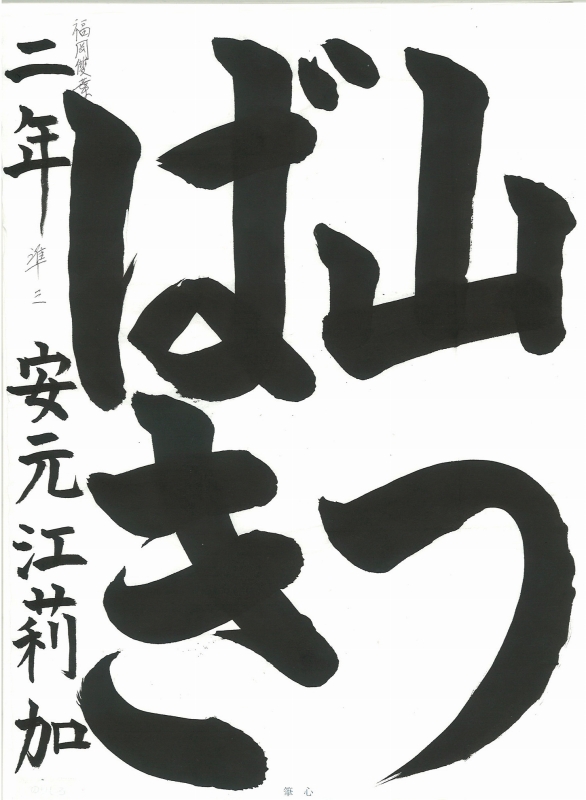 山つ
ばき
福岡俊葉
二年 準三 安元江莉加
筆心